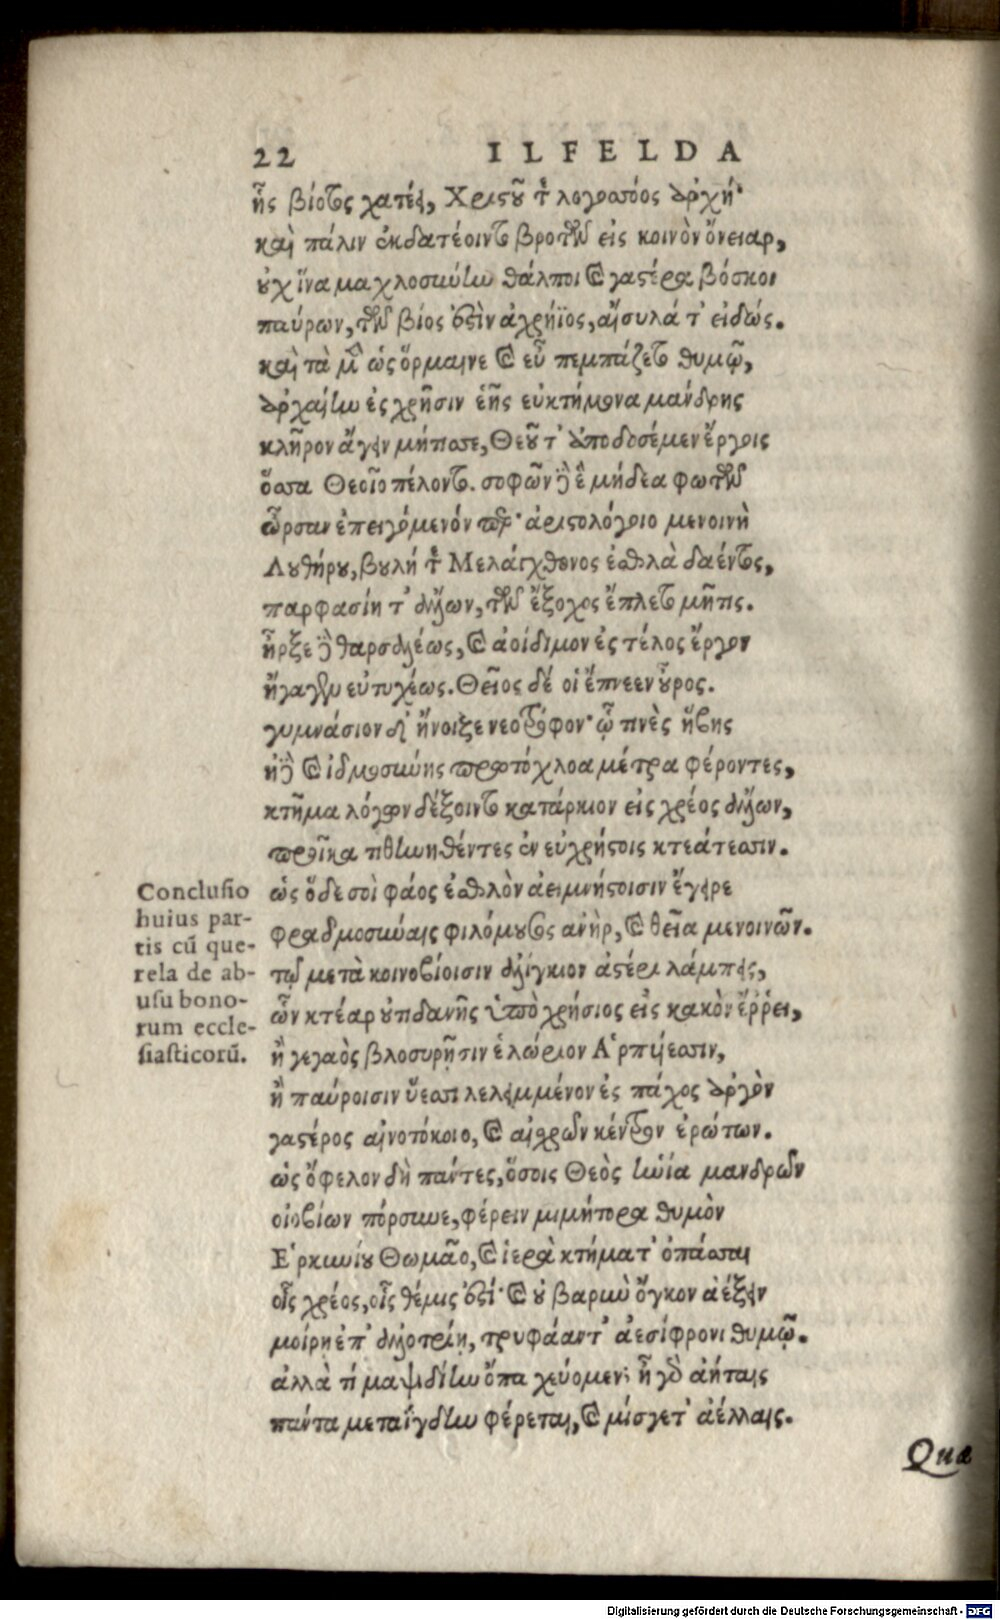 22 ILFELDA
ἧς βίοτος χατέει, Χριςοῦ τε λογοαπόος ἀρχή·
καὶ πάλιν ἐκδατέοιντο βροτῶν εἰς κοινὸν ὄνειαρ,
οὐχ ἵνα μαχλοσύνην θάλποι καὶ γαςέρα βόσκοι
παύρων, τῶν βίος ἐςὶν ἀχρήϊος, αἴσυλά τ' εἰδώς.
καὶ τὰ μὲν ὡς ὅρμαινε καὶ εὖ πεμπάζετο θυμῷ,
ἀρχαίην ἐς χρῆσιν ἑῆς εὐκτήμονα μάνδρης
κλῆρον ἄγειν μήσατο, Θεοῦ τ' ἀποδοσέμεν ἔργοις
ὅσσα Θεοῖο πέλοντο. σοφῶν δέ ἑ μήδεα φωτῶν
ὦρσαν ἐπειγόμενόν περ· ἀριςολόγοιο μενοινὴ
Λυθήρου, βουλή τε Μελάγχθονος ἐσθλὰ δαέντος,
παρφασίη τ' ἄλλων, τῶν ἔξοχος ἔπλετο μῆτις.
ἦρξε δὲ θαρσαλέως, καὶ ἀοίδιμον ἐς τέλος ἔργον
ἤγαγεν εὐτυχέως. Θεῖος δέ οἱ ἔπνεεν οὖρος.
γυμνάσιον δ' ἤνοιξε νεοτρόφον· ᾧ τινὲς ἥβης
ἠδὲ καὶ ἰδμοσύνης πρωτόχλοα μέτρα φέροντες,
κτῆμα λόγων δέξοιντο κατάρκιον εἰς χρέος ἄλλων,
προῖκα τιθηνηθέντες ἐν εὐχρήςοις κτεάτεσσιν.
Conclusio ὡς ὅδε σοὶ φάος ἐσθλὸν ἀειμνήςοισιν ἔγειρε
huius par- φραδμοσύναις φιλόμουσος ἀνὴρ, καὶ θεῖα μενοινῶν.
tis cū que- τῷ μετὰ κοινοβίοισιν ἀλίγκιον ἀςέρι λάμπεις,
rela de ab-
usu bono- ὧν κτέαρ οὐτιδανῆς ὑπὸ χρήσιος εἰς κακὸν ἔῤῥει,
rum eccle-
siasticorū. ἢ γεγαὸς βλοσυρῇσιν ἑλώριον Ἁρπυίεσσιν,
ἢ παύροισιν ὕεσσι λελειμμένον ἐς πάχος ἀργὸν
γαςέρος αἰνοτόκοιο, καὶ αἰσχρῶν κέντρον ἐρώτων.
ὡς ὄφελον δὴ πάντες, ὅσοις Θεὸς ἡνία μανδρῶν
οἰοβίων πόρσυνε, φέρειν μιμήτορα θυμὸν
Ἑρκυνίου Θωμᾶο, καὶ ἱερὰ κτήματ' ὀπάσσαι
οἷς χρέος, οἷς θέμις ἐςί· καὶ οὐ βαρὺν ὄγκον ἀέξειν
μοίρῃ ἐπ' ἀλλοτρίῃ, τρυφάαντ' ἀεσίφρονι θυμῷ.
ἀλλὰ τί μαψιδίην ὄπα χεύομεν; ἦ γὰρ ἀήταις
πάντα μεταΐγδην φέρεται, καὶ μίσγετ' ἀέλλαις.
Quæ
Digitalisierung gefördert durch die Deutsche Forschungsgemeinschaft - DFG